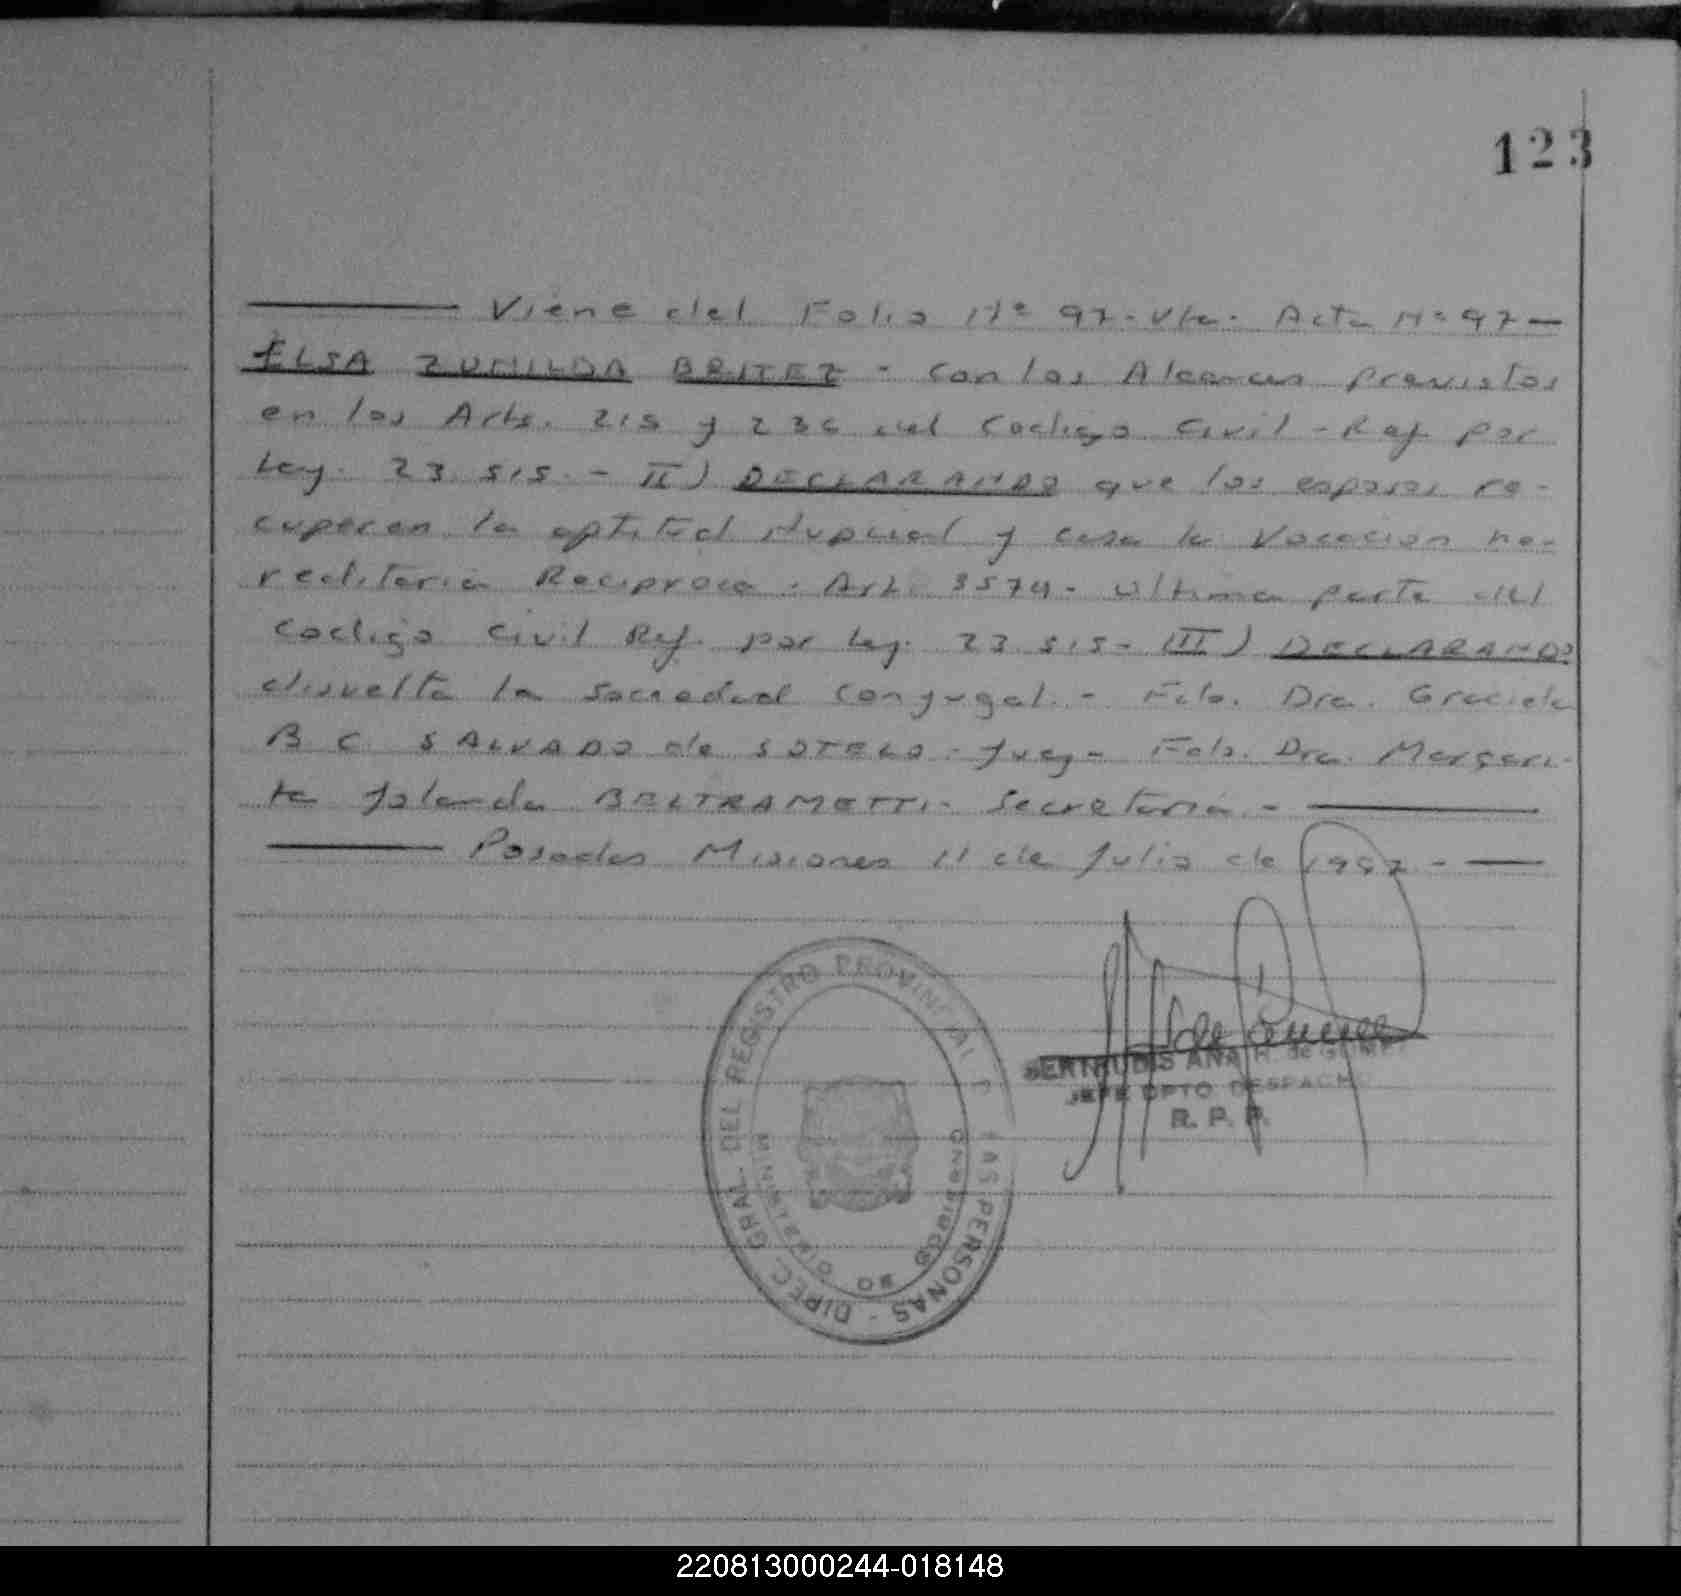 123
Viene del Folio Nº 97. Vta. Acta Nº 97
ELSA ZUNILDA BRITEZ - con los Alcances previstos
en los Arts. 215 y 236 del Codigo Civil - Ref por
Ley. 23.515. - II) DECLARANDO que los esposos re-
cuperan la aptitud Nupcial y cesa la Vocacion he-
reditaria Reciproca. Art. 3574. Ultima parte del
Codigo Civil Ref. por Ley. 23.515- III) DECLARANDO
disuelta la Sociedad Conyugal. - Fdo. Dra. Graciela
B C SALVADO de SOTELO. Juez- Fdo. Dra. Margari-
ta Yolanda BELTRAMETTI- Secretaria. -
Posadas Misiones 11 de Julio de
GERTRUDIS ANA
JEFE DPTO DESPACHO
R. P. P.
DIREC. GRAL. DEL REGISTRO PROVINCIAL DE LAS PERSONAS -
MINISTERIO DE GOBIERNO
220813000244-018148